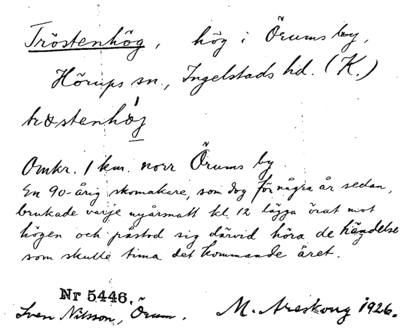 Tröstenhög, hög i Örums by,
Hörups sn., Ingelstads hd. (K.)
Omkr. 1 km. norr Örums by.
En 90-årig skomakare, som dog för några år sedan,
brukade varje nyårsnatt kl 12 lägga örat mot
högen och påstod sig därvid höra de händelser
som skulle tima det kommande året.
Nr 5446.
Sven Nilsson, Örum. M. Areskoug 1926.